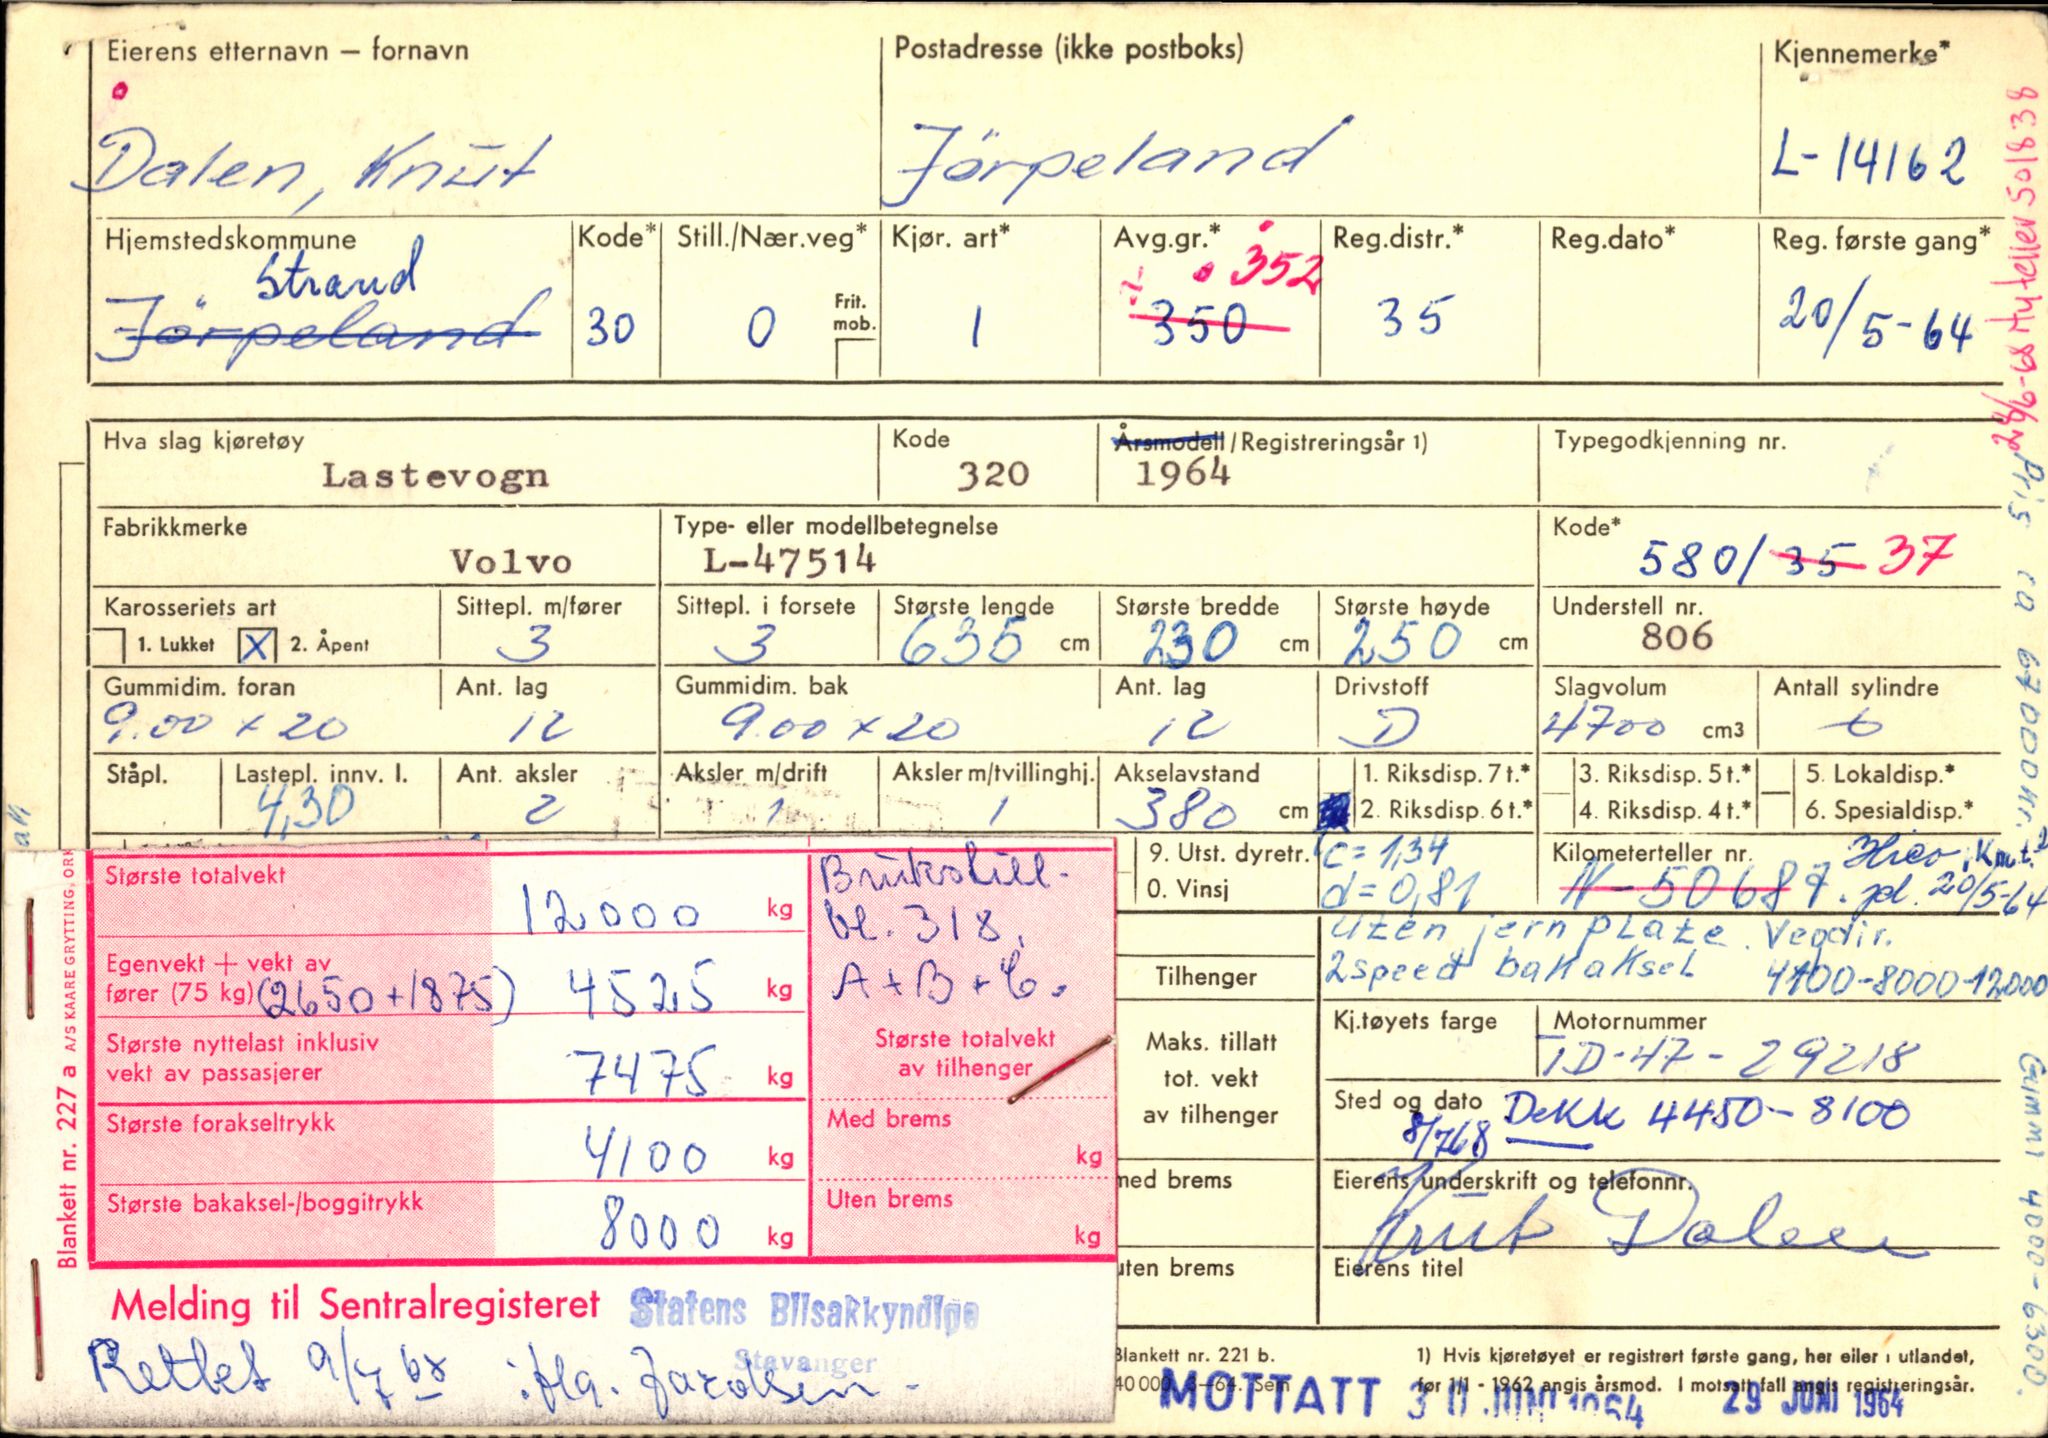 Eierens etternavn — fornavn
Postadresse (ikke postboks)
Kjennemerke*
Dalen, Knut
Jörpeland
L-14162
Hjemstedskommune
Kode*
Still./Nær.veg*
Kjør. art*
Avg.gr.*
Reg.distr.*
Reg.dato*
Reg. første gang*
Strand
352
Jörpeland
30
0
Frit. mob.
1
350
35
20/5-64
Hva slag kjøretøy
Kode
Årsmodell / Registreringsår 1)
Typegodkjenning nr.
Lastevogn
320
1964
Fabrikkmerke
Type- eller modellbetegnelse
Kode*
Volvo
L-47514
580/35 37
Karosseriets art
Sittepl. m/fører
Sittepl. i forsete
Største lengde
Største bredde
Største høyde
Understell nr.
1. Lukket X 2. Åpent
3
3
635 cm
230 cm
250 cm
806
Gummidim. foran
Ant. lag
Gummidim. bak
Ant. lag
Drivstoff
Slagvolum
Antall sylindre
9.00 x 20
12
9.00 x 20
12
D
4700 cm3
6
Ståpl.
Lastepl. innv. l.
Ant. aksler
Aksler m/drift
Aksler m/tvillinghj.
Akselavstand
1. Riksdisp. 7 t.*
3. Riksdisp. 5 t.*
5. Lokaldisp.*
4,30
2
1
1
380 cm
2. Riksdisp. 6 t.*
4. Riksdisp. 4 t.*
6. Spesialdisp.*
9. Utst. dyretr.
c = 1,34
Kilometerteller nr.
0. Vinsj
d = 0,81
N-50687.
20/5-64
Uten jernplate. Vegdir.
2speed bakaksel 4100-8000-12000
Tilhenger
Kj.tøyets farge
Motornummer
TD-47-29218
Maks. tillatt
tot. vekt
av tilhenger
Sted og dato
Dekk 4450-8100
8/768
med brems
Eierens underskrift og telefonnr.
Knut Dalen
uten brems
Eierens titel
Blankett nr. 221 b.
1) Hvis kjøretøyet er registrert første gang, her eller i utlandet,
før 1/1 - 1962 angis årsmod. I motsatt fall angis registreringsår.
MOTTATT 30 JUNI 1964
29 JUNI 1964
Største totalvekt
12000 kg
Egenvekt + vekt av
fører (75 kg) (2650+1875) 4525 kg
Største nyttelast inklusiv
vekt av passasjerer
7475 kg
Største forakseltrykk
4100 kg
Største bakaksel-/boggitrykk
8000 kg
bl. 318.
A+B+C.
Største totalvekt
av tilhenger
Med brems
kg
Uten brems
kg
Melding til Sentralregisteret
Statens Bilsakkyndige
Stavanger
Rettet 9/7 68
Blankett nr. 227 a A/S KAARE GRYTTING, ORK
501838
Pris ca 67000 kr.
Gummi 4000-6300.